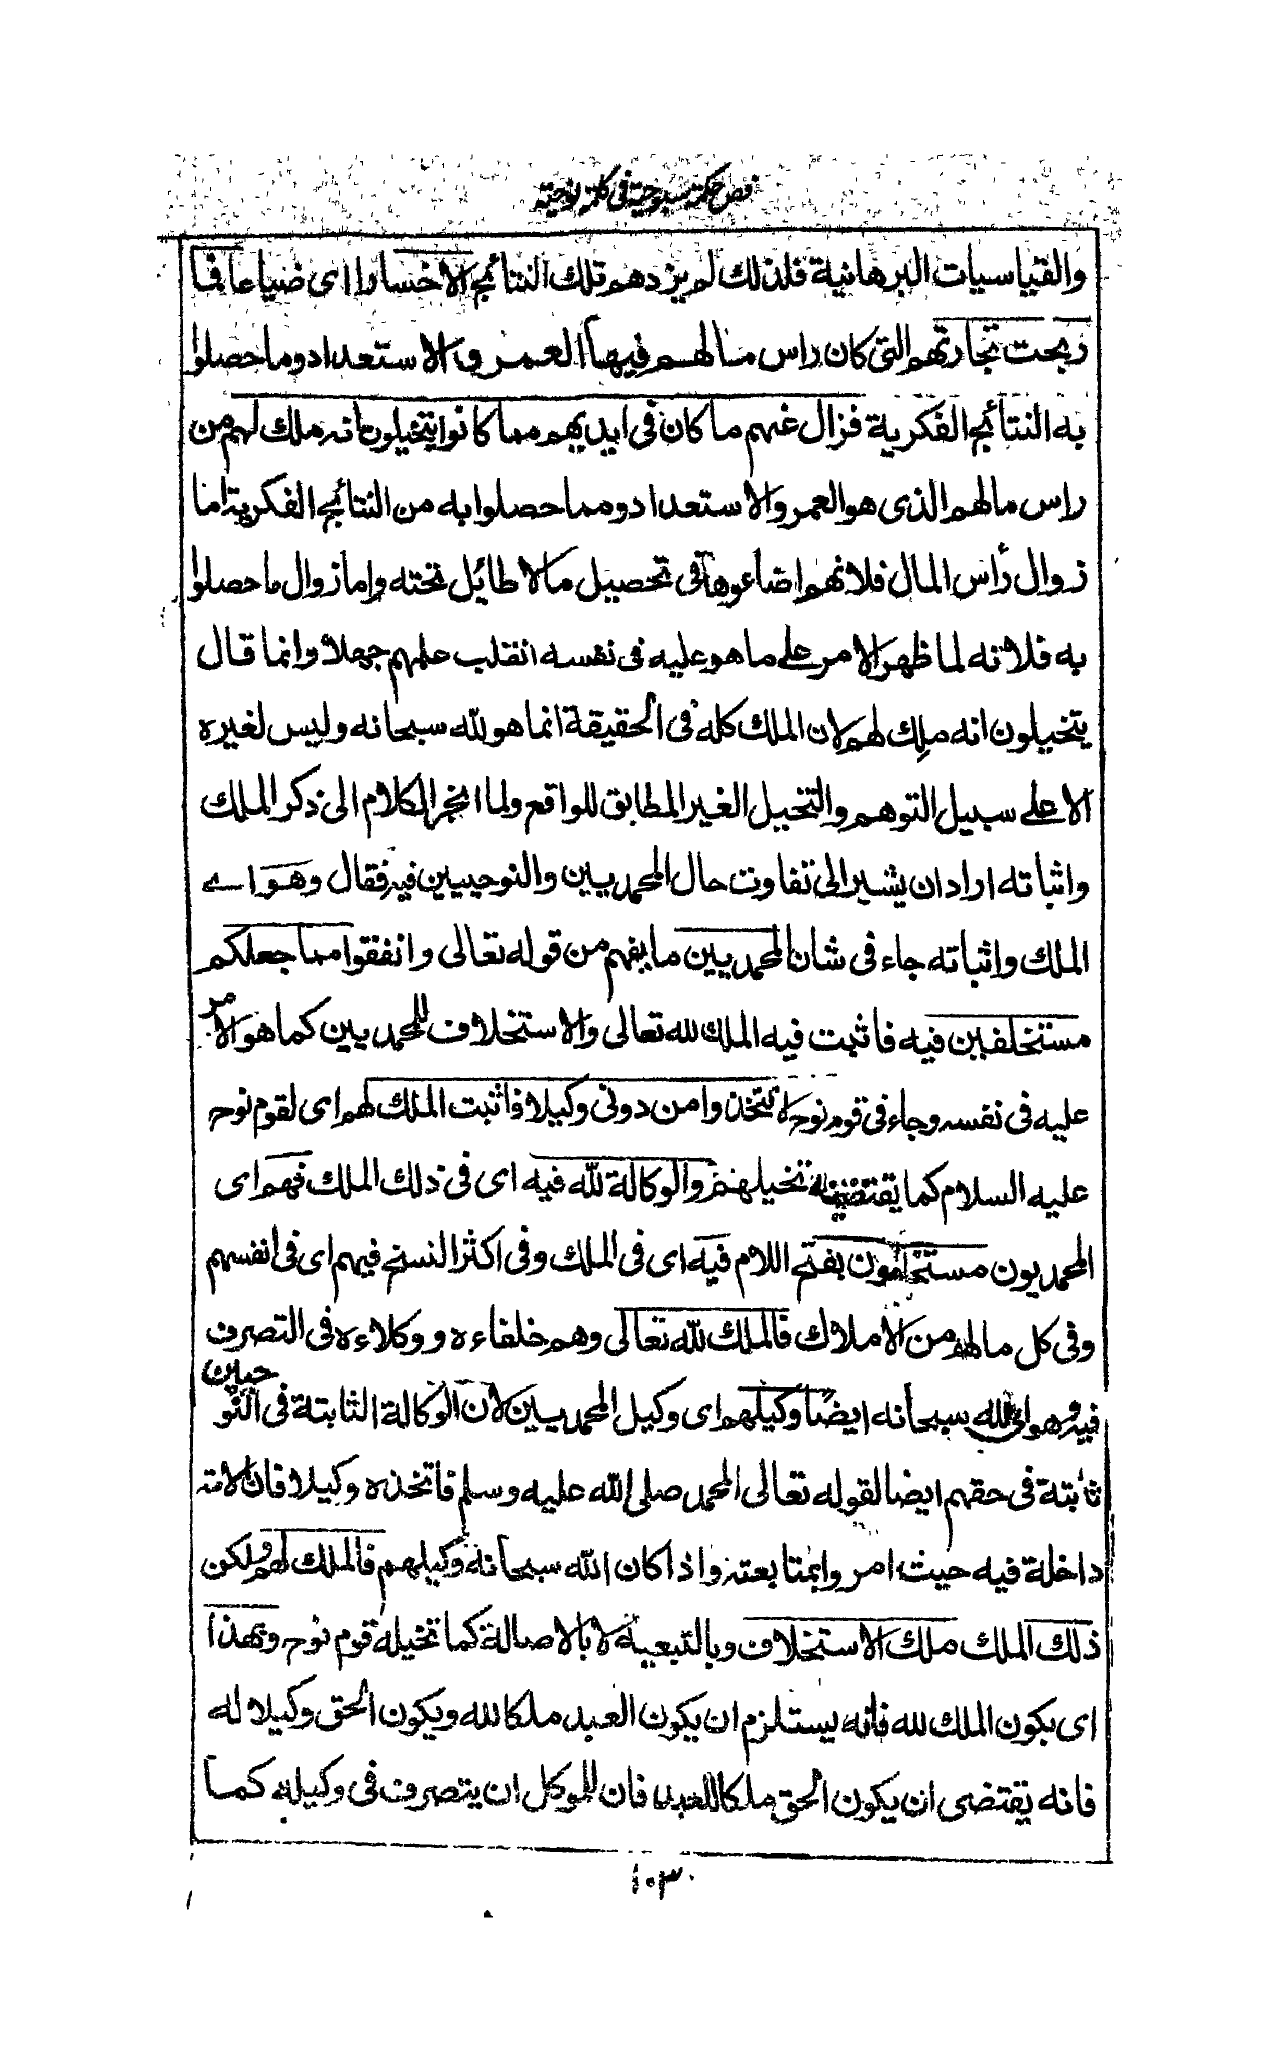 فص حكمة سبوحية فى كلمة نوحية
والقياسيات البرهانية فلذلك لم يزدهم تلك النتائج الا خسارا اى ضياعا فما
ربحت تجارتهم التى كان راس مالهم فيها العمر والاستعداد وما حصلوا
به النتائج الفكرية فزال عنهم ما كان فى ايديهم مما كانوا يتخيلون انه ملك لهم من
راس مالهم الذى هو العمر والاستعداد ومما حصلوا به من النتائج الفكرية اما
زوال رأس المال فلانهم اضاعوها فى تحصيل ما لا طائل تحته واما زوال ما حصلوا
به فلانه لما ظهر الامر على ما هو عليه فى نفسه انقلب علمهم جهلا وانما قال
يتخيلون انه ملك لهم لان الملك كله فى الحقيقة انما هو لله سبحانه وليس لغيره
الا على سبيل التوهم والتخيل الغير المطابق للواقع ولما انجر الكلام الى ذكر الملك
واثباته اراد ان يشير الى تفاوت حال المحمديين والنوحيين فيه فقال وهو اے
الملك واثباته جاء فى شان المحمديين ما يفهم من قوله تعالى وانفقوا مما جعلكم
مستخلفين فيه فاثبت فيه الملك لله تعالى والاستخلاف للمحمديين كما هو الامر
عليه فى نفسه وجاء فى قوم نوح لا تتخذوا من دونى وكيلا فاثبت الملك لهم اى لقوم نوح
عليه السلام كما يقتضيه تخيلهم والوكالة لله فيه اى فى ذلك الملك فهم اى
المحمديون مستخلفون بفتح اللام فيه اى فى الملك وفى اكثر النسخ فيهم اى فى انفسهم
وفى كل مالهم من الاملاك فالملك لله تعالى وهم خلفاءه ووكلاءه فى التصرف
فيه وهو اى الله سبحانه ايضا وكيلهم اى وكيل المحمديين لان الوكالة الثابتة فى النوحيين
ثابتة فى حقهم ايضا لقوله تعالى المحمد صلى الله عليه وسلم فاتخذه وكيلا فان الامة
داخلة فيه حيث امروا بمتابعته واذا كان الله سبحانه وكيلهم فالملك لهم ولكن
ذلك الملك ملك الاستخلاف وبالتبعية لا بالاصالة كما تخيله قوم نوح وبهذا
اى بكون الملك لله فانه يستلزم ان يكون العبد ملكا لله ويكون الحق وكيلا له
فانه يقتضى ان يكون الحق ملكا للعبد فان للموكل ان يتصرف فى وكيله كما
١٠٣